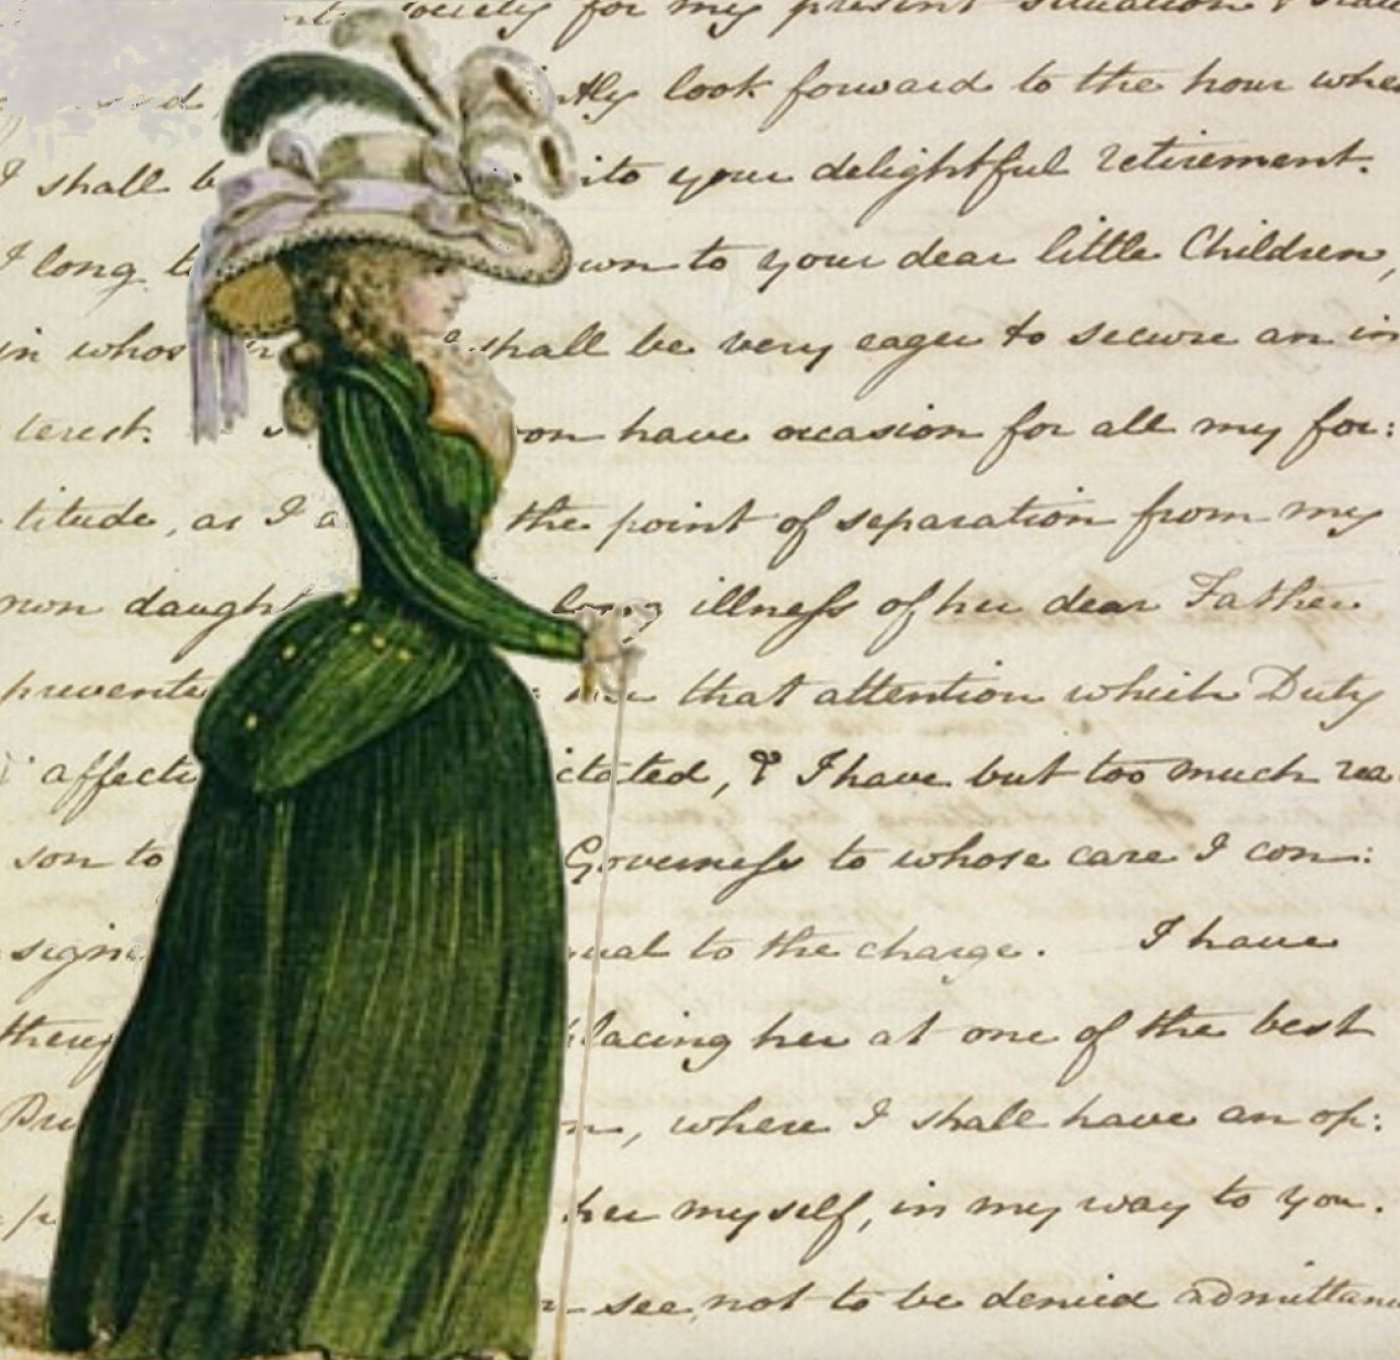 society for my present situation &
look forward to the hour when
I shall be into your delightful retirement.
I long to your dear little Children,
in whose shall be very eager to secure an in
terest. soon have occasion for all my for:
titude, as I a the point of separation from my
own daught long illneſs of her dear Father
prevente that attention which Duty
& affecti ctated, & I have but too much rea
son to Governeſs to whose care I con:
sign ual to the charge. I have
there lacing her at one of the best
where I shall have an op:
her myself, in my way to you.
see, not to be denied admittan